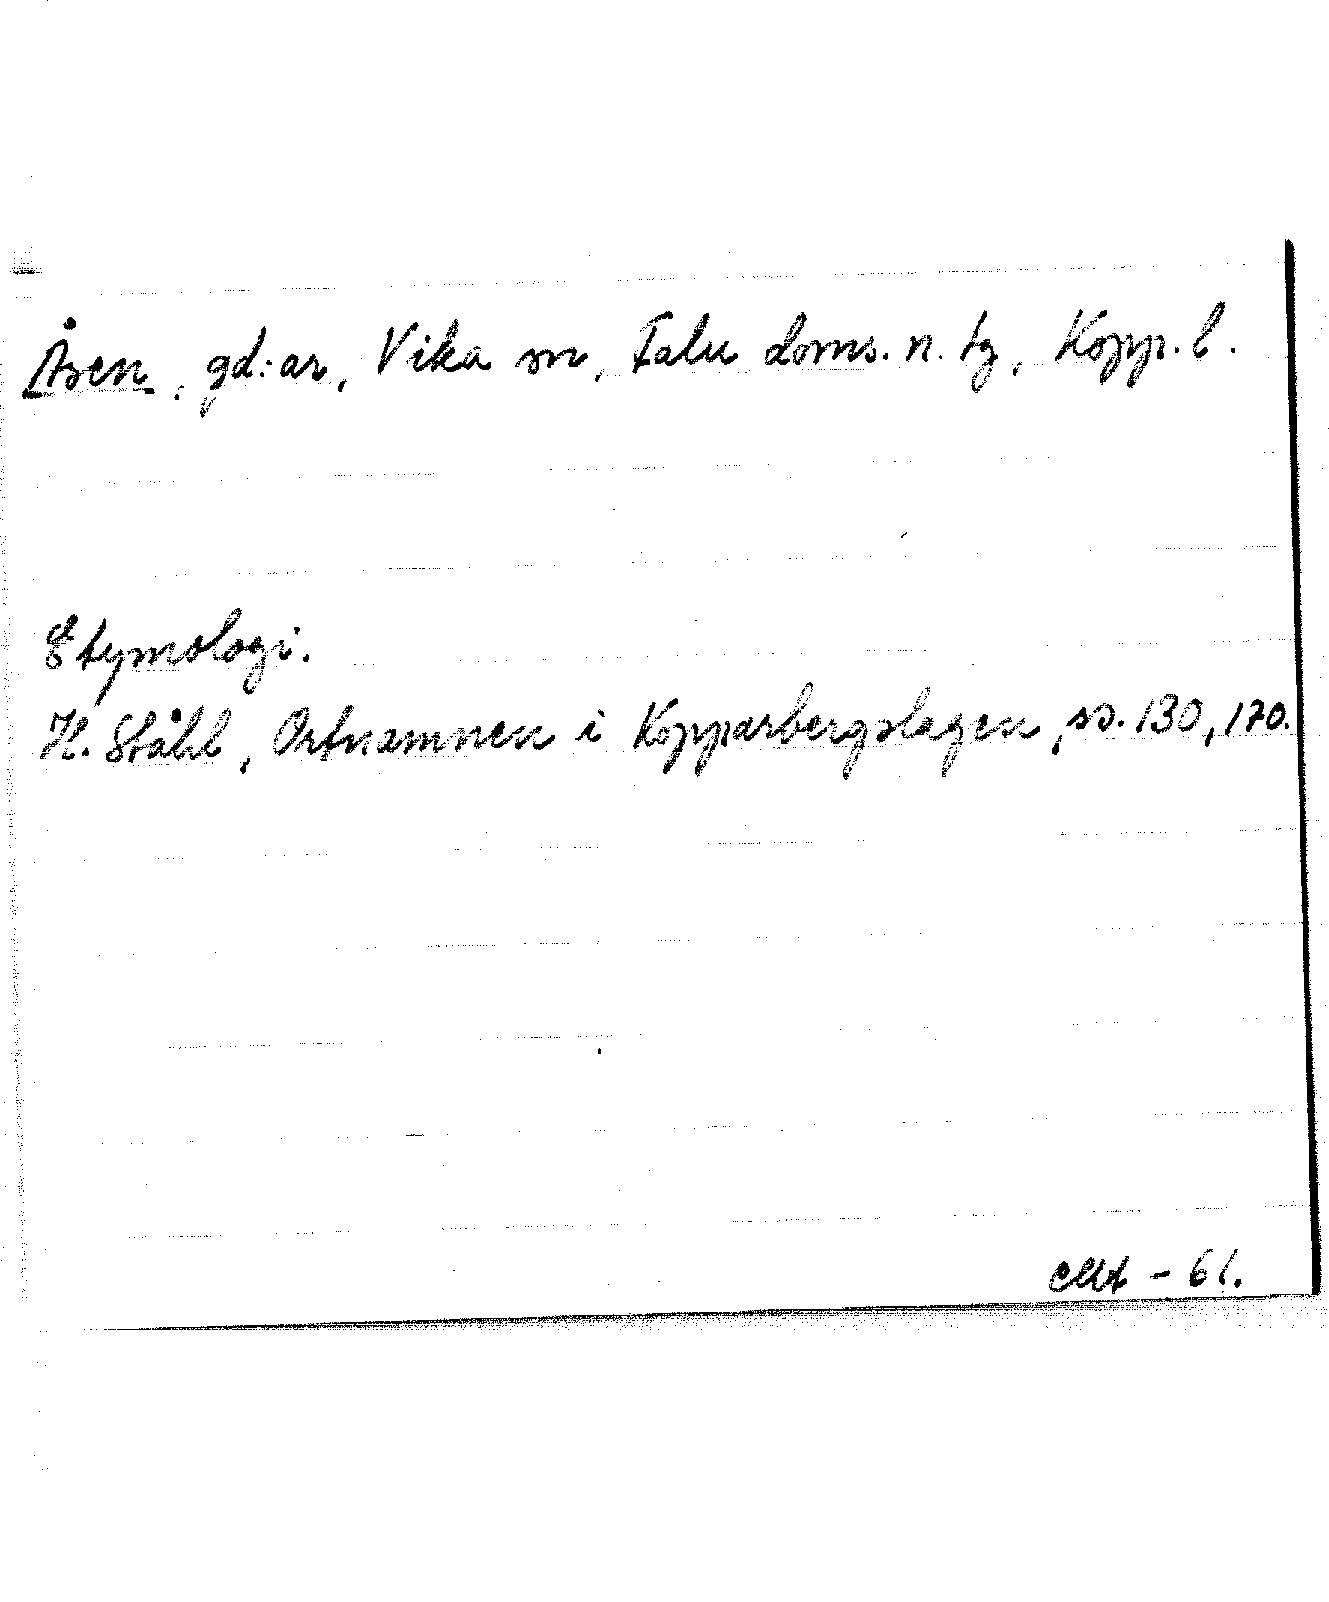 Åsen, gd:ar, Vika sn, Falu doms. n. tg, Kopp. l.
Etymologi.
H. Ståhl, Ortnamnen i Kopparbergslagen, ss. 130, 170.
- 61.